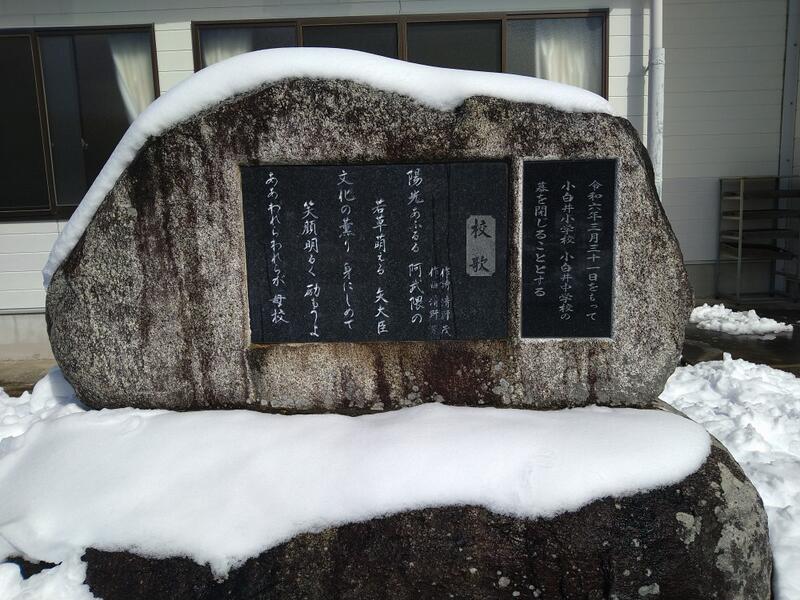 令和六年三月三十一日をもって
小白井小学校 小白井中学校の
幕を閉じることとする
校歌
作詞 清野 茂
作曲 清野 茂
陽光あふるる 阿武隈の
若草萌える 矢大臣
文化の薫り 身にしめて
笑顔明るく 励もうよ
ああわれらわれらが 母校